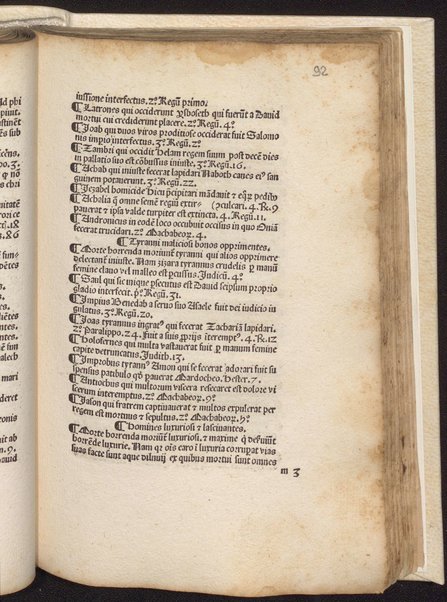 92
iussione interfectus. 2º Regũ primo.
¶ Latrones qui occiderunt ysboseth qui fuerũt a Dauid
mortui cui crediderunt placere. 2º Regũ. 4º
¶ Joab qui duos viros proditiose occiderat fuit Salomo
nis impio interfectus. 3º Regũ. 2º
¶ Zambri qui occidit Helam regem suum post decẽ dies
in pallatio suo est cõbustus iniuste. 3º Regũ. 16.
¶ Achab qui iniuste fecerat lapidari Naboth canes eiꝰ san
guinem potauerunt. 3º Regũ. 22.
¶ Jezabel homicide hui pcipitari mãdauit ⁊ eqꝝ pedibꝰ
¶ Athalia q̃ omne semẽ regiũ extir- (cõculcari. 4º R. 9
pauerat ⁊ ipsa valde turpiter est extincta. 4º Regũ. 11.
¶ Andronicus in eodẽ loco occubuit occisus in quo Oniã
fecerat trucidari. 2º Machabeoꝝ. 4.
¶ Tyranni maliciosi bonos opprimentes.
¶ Morte horrenda moriunt̃ tyranni qui alios opprimere
delectant̃ iniuste. Nam zizara tyrannus crudelis ꝑ manũ
femine clauo vel malleo est pcussus. Judicũ. 4º
¶ Saul qui sic inique psecutus est Dauid seipsum proprio
gladio interfecit. pº Regũ. 31.
¶ Impius Benedab a seruo suo Asaele fuit dei iudicio iu
gulatus. 3º Regũ. 20.
¶ Joas tyrannus ingratꝰ qui fecerat Zachariã lapidari.
2º Paralippo. 24. fuit a suis ꝓprijs īteremptꝰ. 4º R. 12
¶ Holofernes qui multa vastauerat fuit ꝑ manum femine
capite detruncatus. Judith. 13.
¶ Improbus tyrannꝰ Amon qui se fecerat adorari fuit su
spensus patibulo qd̃ pauerat Mardocheo. Hester. 7.
¶ Antiochus qui multorum viscera resecaret est dolore vi
scerum interemptus. 2º Machabeoꝝ. 9º
¶ Jason qui fratrem captiuauerat ⁊ multos expulerat per
regem est mortuus ⁊ sepultus. 2º Machabeoꝝ. 5º
¶ Homines luxuriosi ⁊ lasciuantes.
¶ Morte horrenda moriunt̃ luxuriosi. ⁊ maxime q̃ deseruiũt
horrẽde luxurie. Nam qr oīs caro ī luxuria corrupat vias
suas facte sunt aque diluuij ex quibus mortui sunt omnes
m 3